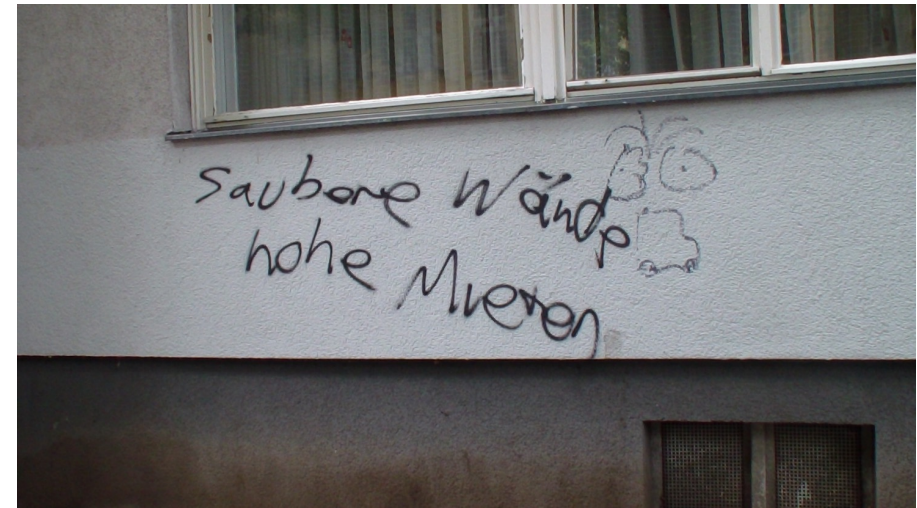 Saubere Wände
hohe Mieten